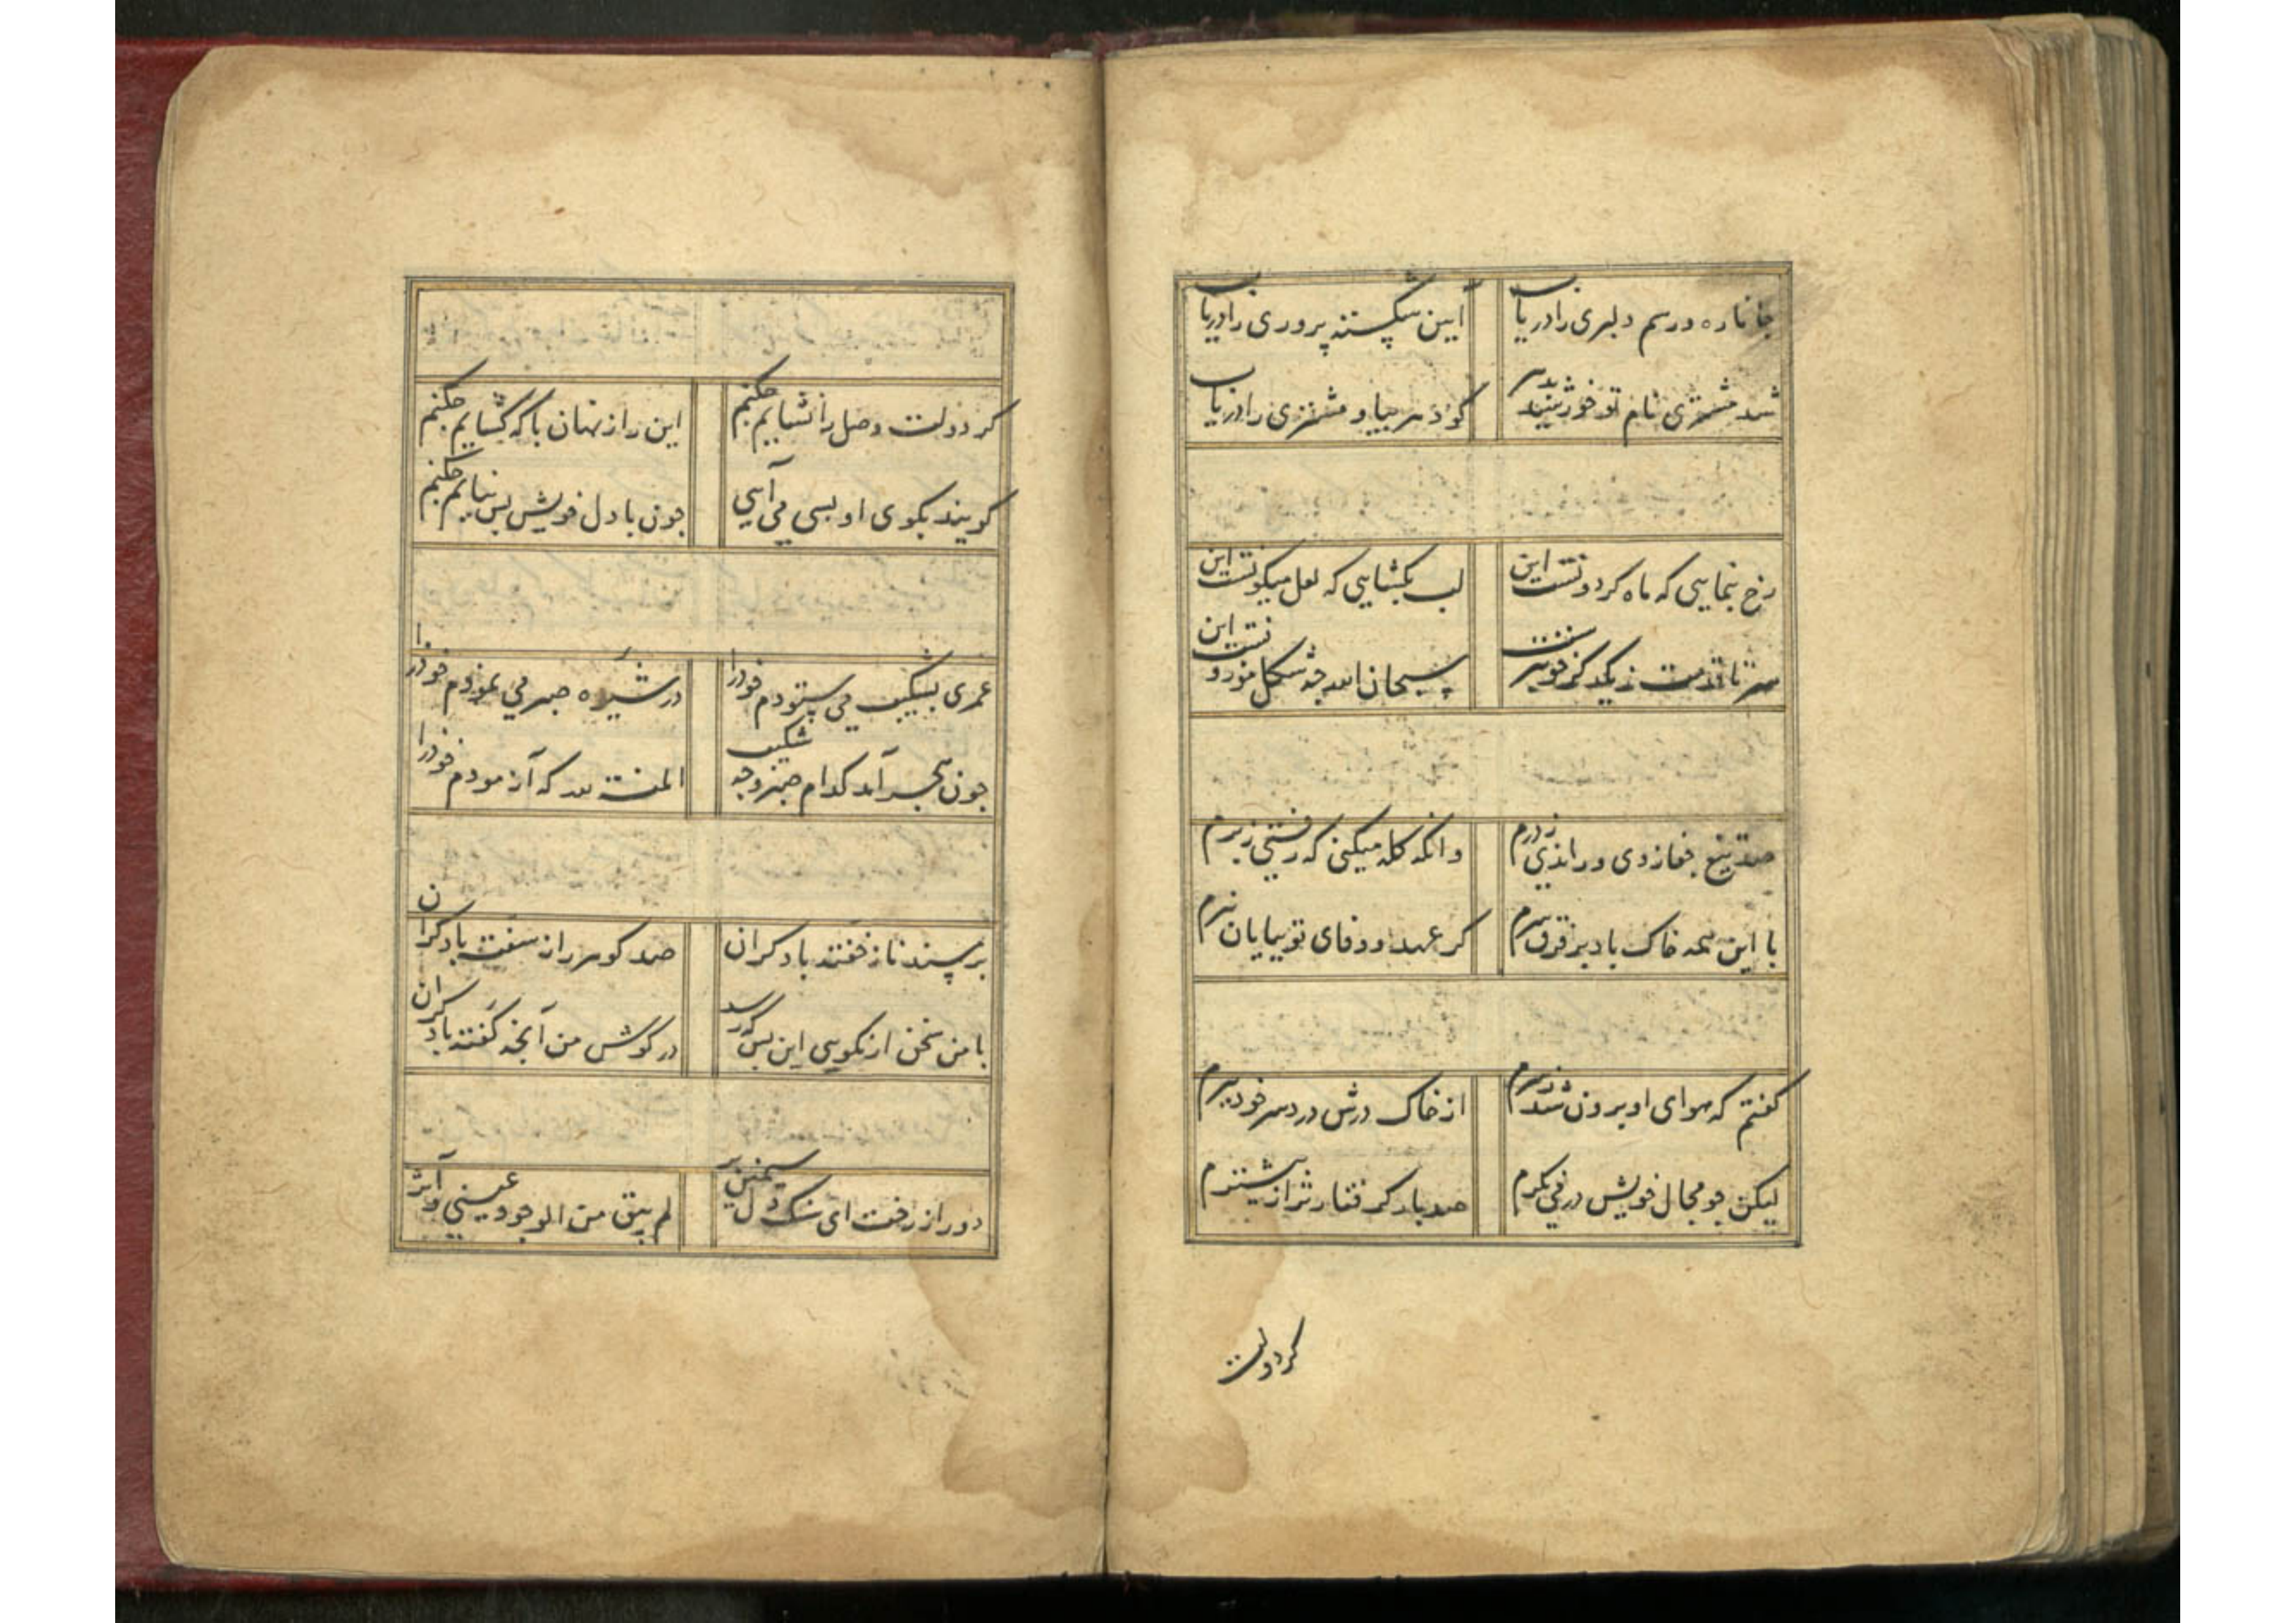 جانا ره و رسم دلبری را دریاب
ایین شکسته پروری را دریاب
شد مشتری نام تو خورشید
کو ذمر بیا و مشتری را دریاب
رخ بنمایی که ماه کردونست این
لب بکشایی که لعل میکونست این
سر تا قدمت زیکدکر خوبترست
سبحان الله چه شکل موزونست این
صد تیغ جفا زدی و راندی ز درم
وانکه کله میکنی که رفتی ز برم
با این همه خاک باد بر فرق سرم
کر عهد و وفای تو بپایان نبرم
کفتم که هوای او برون شد ز سرم
از خاک درش درد سر خود ببرم
لیکن چو مجال خویش در می نکرم
صد بار کرفتارتر از پیشترم
کر دولت
کر دولت وصل را نشایم چکنم
این راز نهان با که کشایم چکنم
کویند بکوی او بسی می آیی
چون با دل خویش بس نیایم چکنم
عمری بشکیب می ستودم خود را
در شیوه صبر می نمودم خود را
چون هجر آمد کدام صبر و چه شکیب
المنة لله که آزمودم خود را
بر بستر ناز خفته با دکران
صد کوهر راز سفته با دکران
با من سخن ار نکویی این بس که رسد
در کوش من آنچه کفته با دکران
دور از رخت ای سنک دل سیمین بر
لم یبق من الوجود عینی و اثر